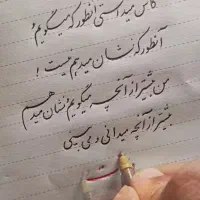 کاش میدانستی آنطور که میگویم و
آنطور که نشان میدهم نیست !
من بیشتر از آنچه میگویم و نشان میدهم
بیشتر از آنچه میدانی و می بینی